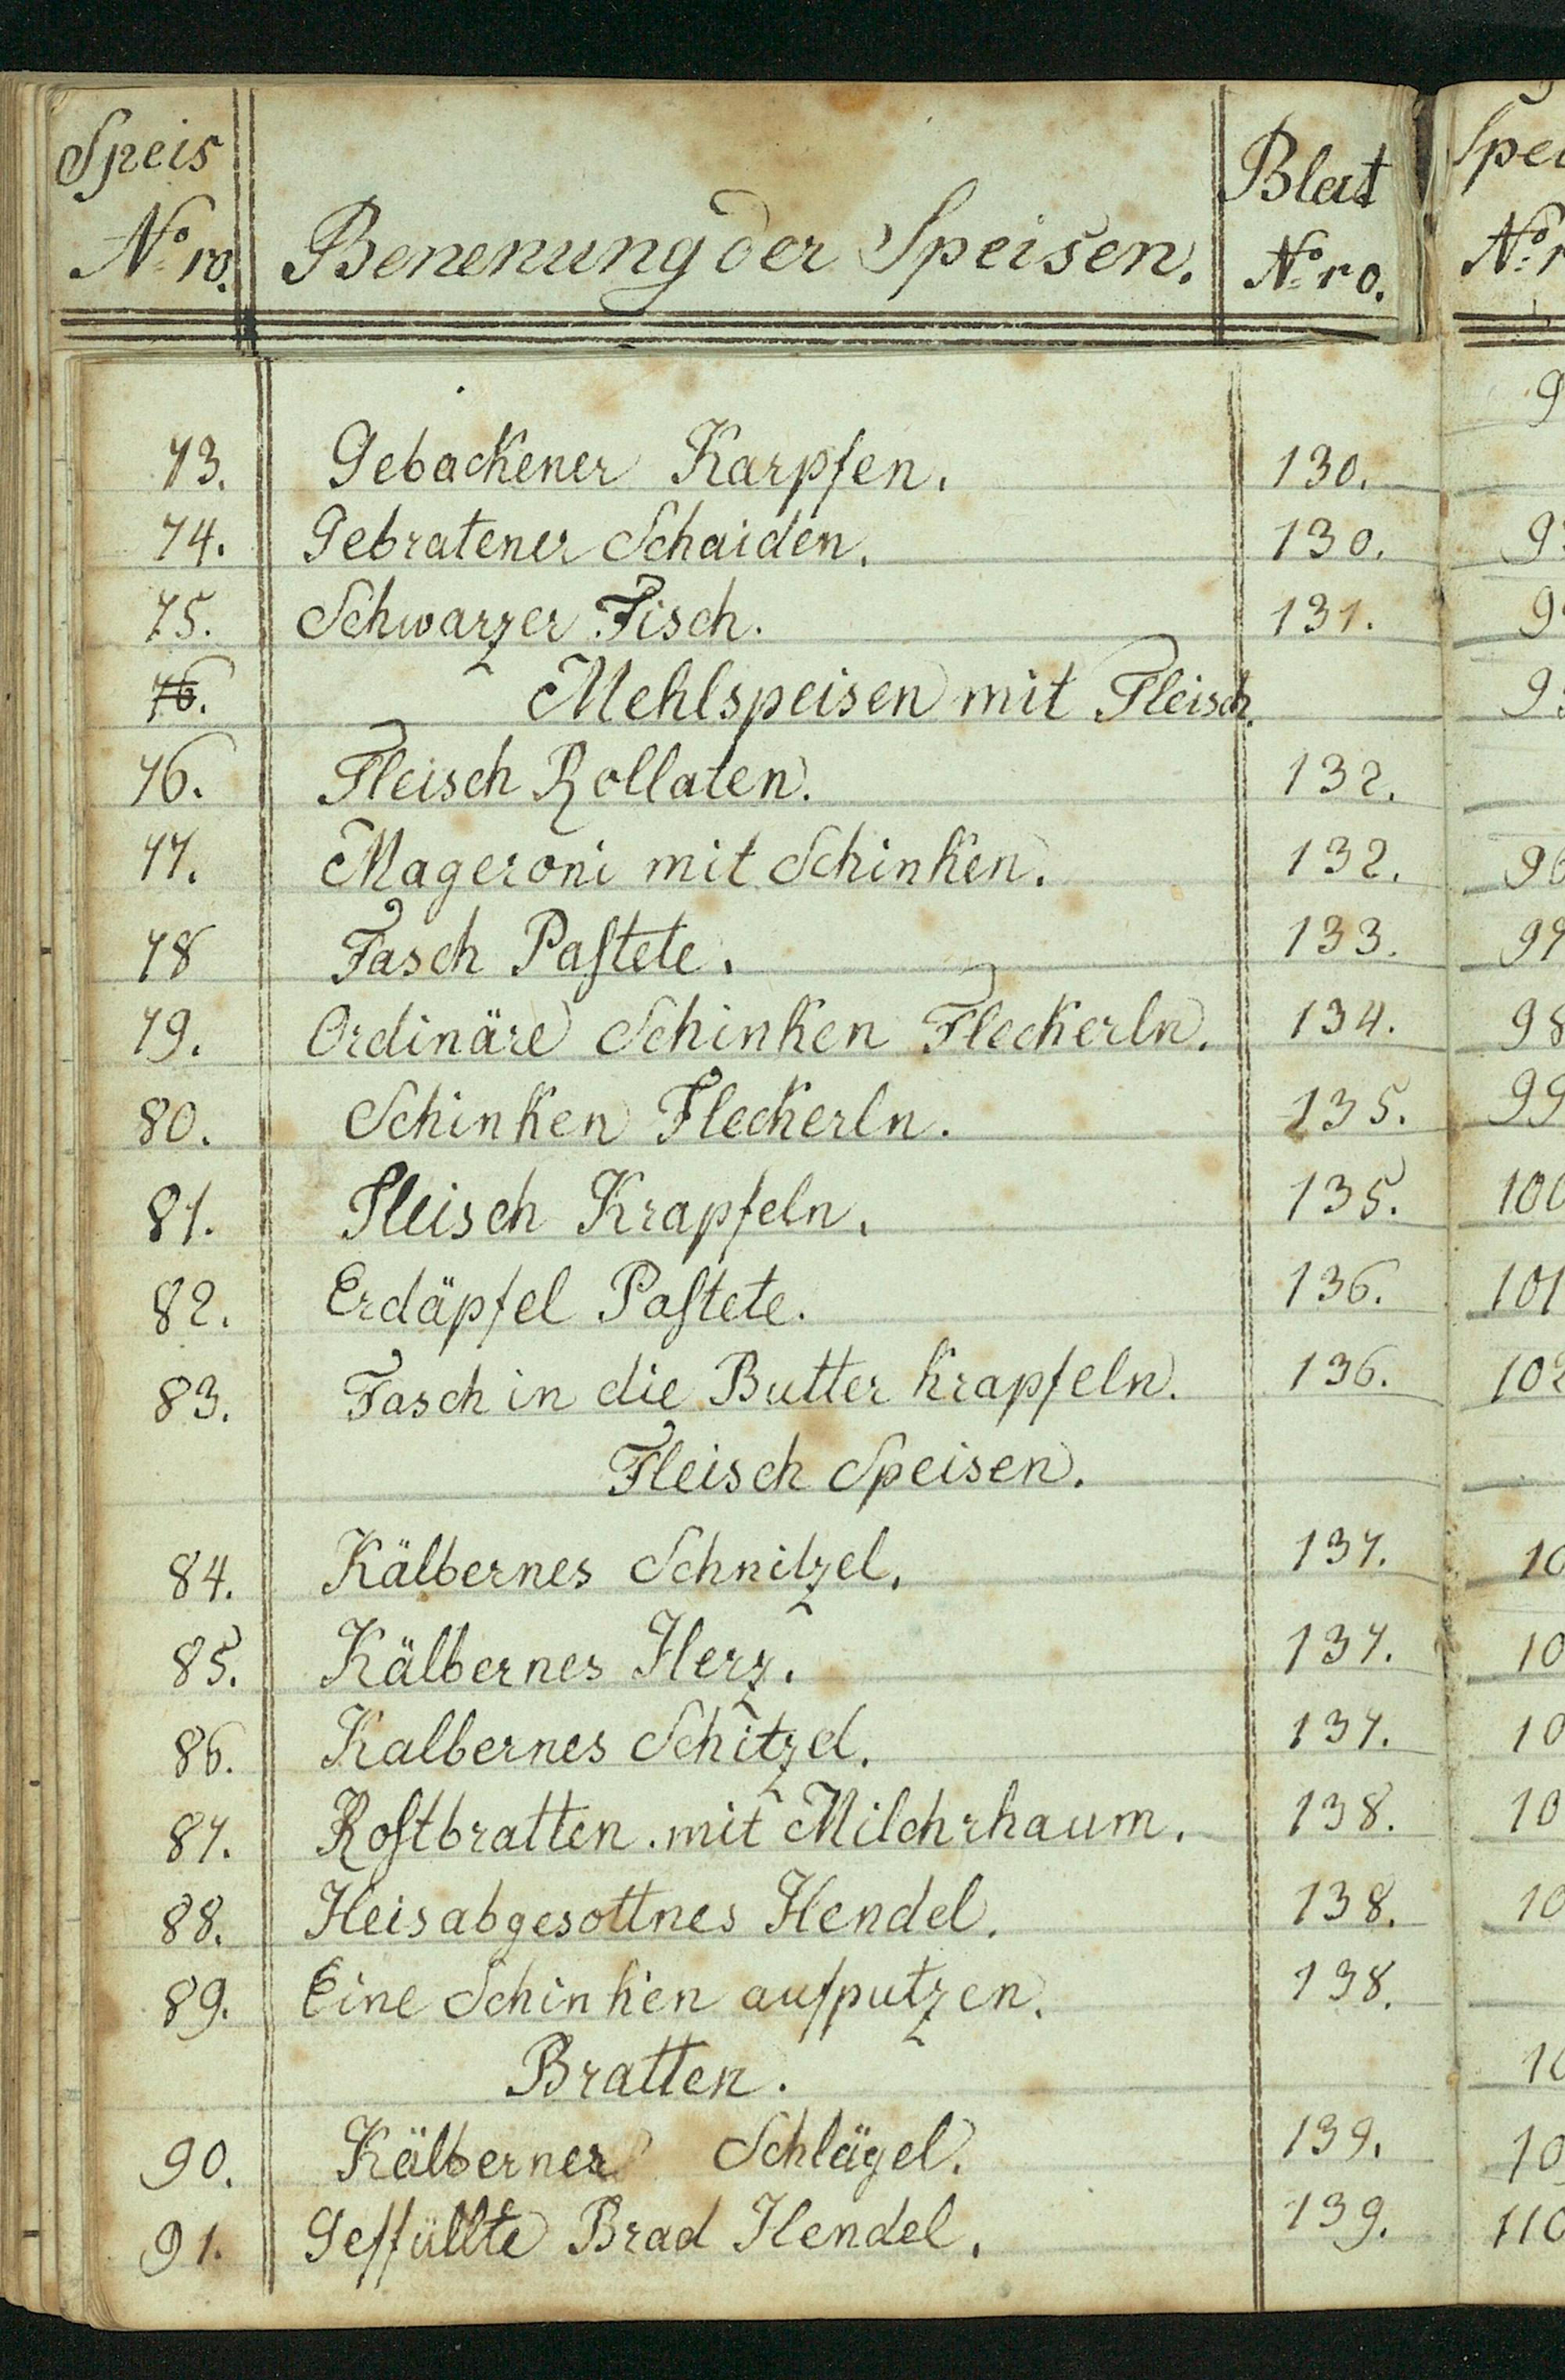 Speis Blat Spei
Nº ro. Benenung der Speisen. Nº ro. Nº r
73. Gebackener Karpfen. 130.
74. Gebratener Schaiden. 130.
75. Schwarzer Fisch. 131.
76. Mehlspeisen mit Fleisch.
76. Fleisch Rollaten. 132.
77. Mageroni mit Schinken. 132. 96
78 Fasch Paſtete. 133. 97
79. Ordinäre Schinken Fleckerln. 134. 98
80. Schinken Fleckerln. 135. 99
81. Fleisch Krapfeln. 135. 100
82. Erdäpfel Paſtete. 136. 101
83. Fasch in die Butter Krapfeln. 136. 102
Fleisch Speisen.
84. Kälbernes Schnitzel. 137. 10
85. Kälbernes Herz. 137. 10
86. Kalbernes Schitzel. 137. 10
87. Roſtbratten. mit Milchrhaum. 138. 10
88. Heisabgesottnes Hendel. 138. 10
89. Eine Schinken aufputzen. 138.
Bratten. 10
90. Kälberner Schlägel. 139. 10
91. Geffüllte Brad Hendel. 139. 110